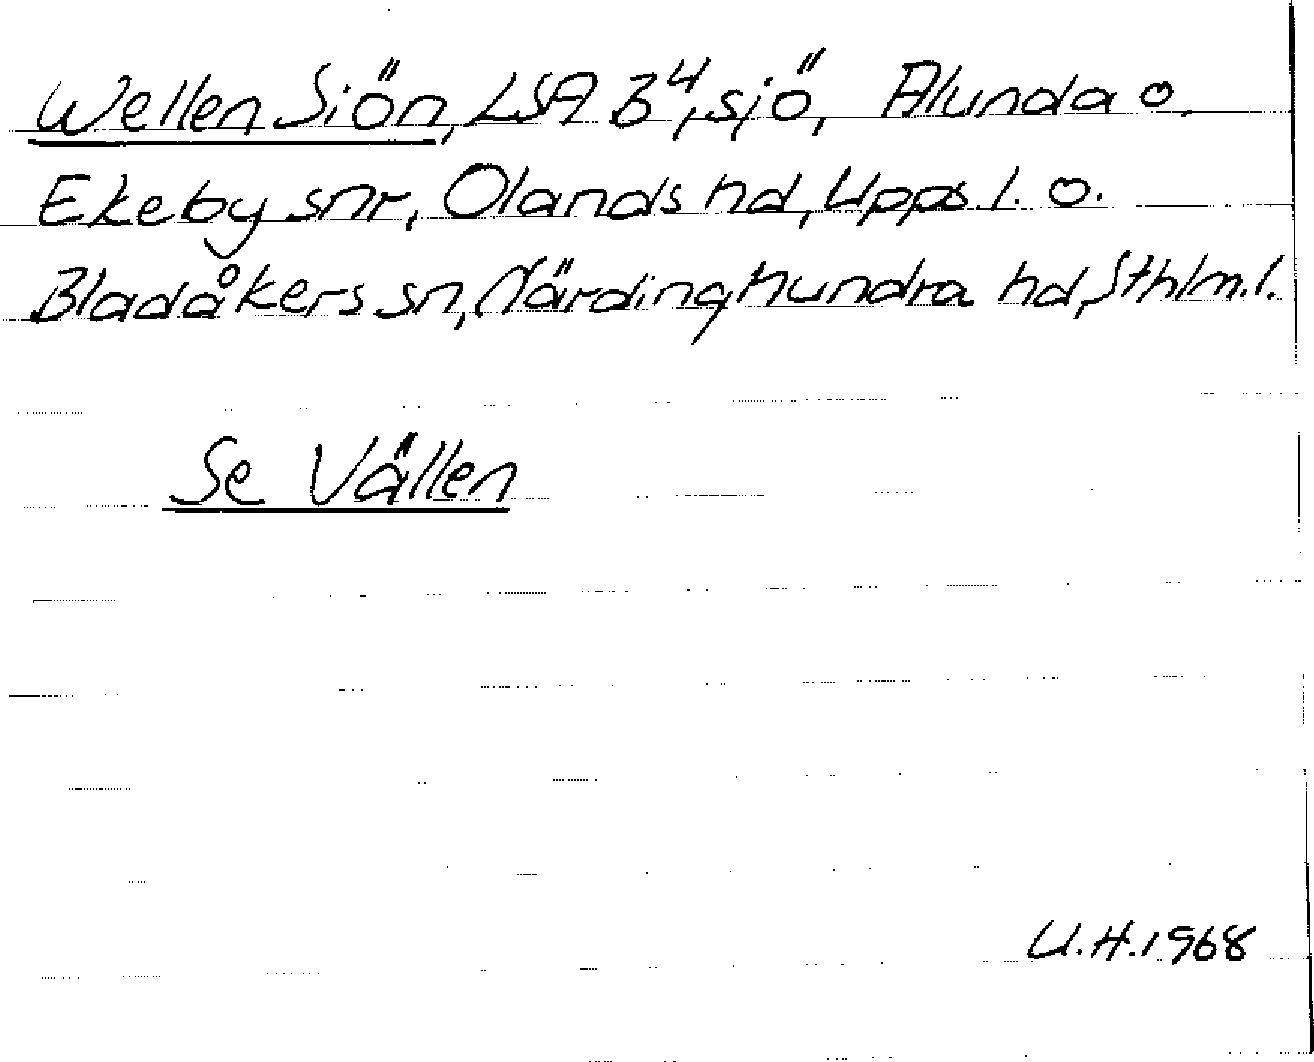 Wellen Siön, LSA B⁴, sjö, Alunda o.
Ekeby snr, Olands hd, Upps l. o.
Bladåkers sn, Närdinghundra hd, Sthlm.l.
Se Vällen
U.H.1968